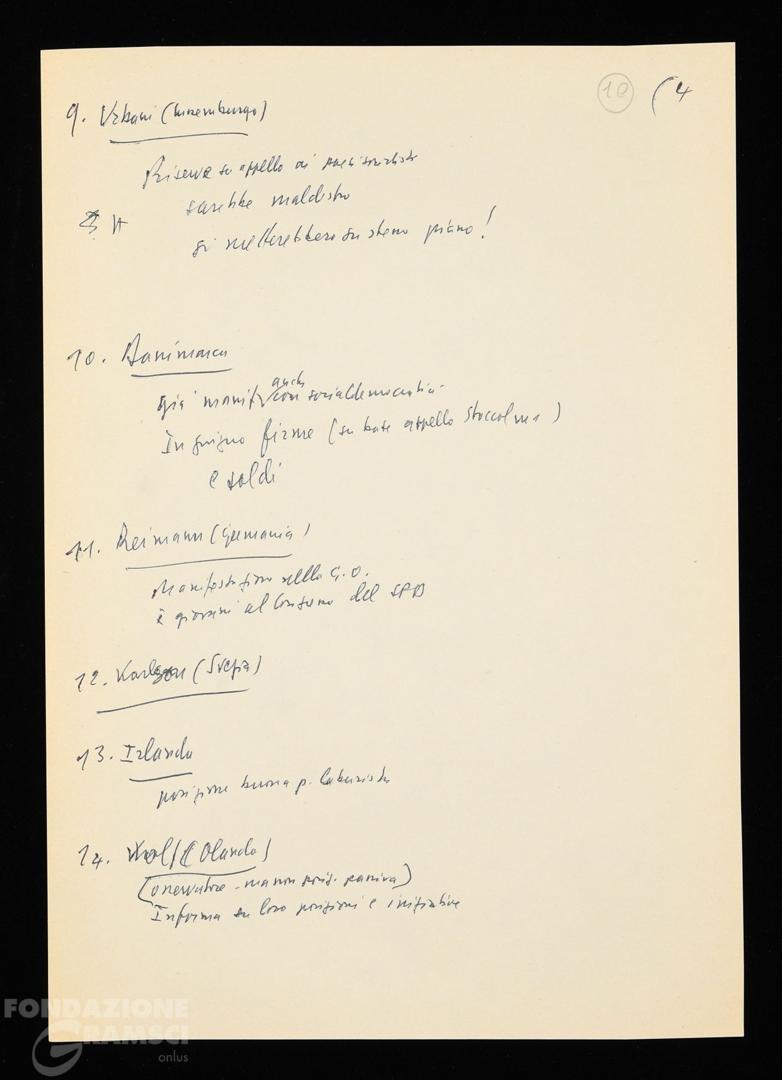 10 (4
9. Urbani (Lussemburgo)
Riserve su appello ai socialisti
sarebbe maldestro
si metterebbero su stesso piano!
10. Danimarca
già manif. anche con socialdemocratici
In giugno firme (su base appello Stoccolma)
e soldi
11. Reimann (Germania)
Manifestazione della G.O.
e giovani al Congresso del SPD
12. Karlsson (Svezia)
13. Irlanda
posizione buona p. laburista
14. Wolff (Olanda)
(osservatore - ma non posiz. passiva)
Informa su loro posizioni e iniziative
FONDAZIONE
GRAMSCI
onlus